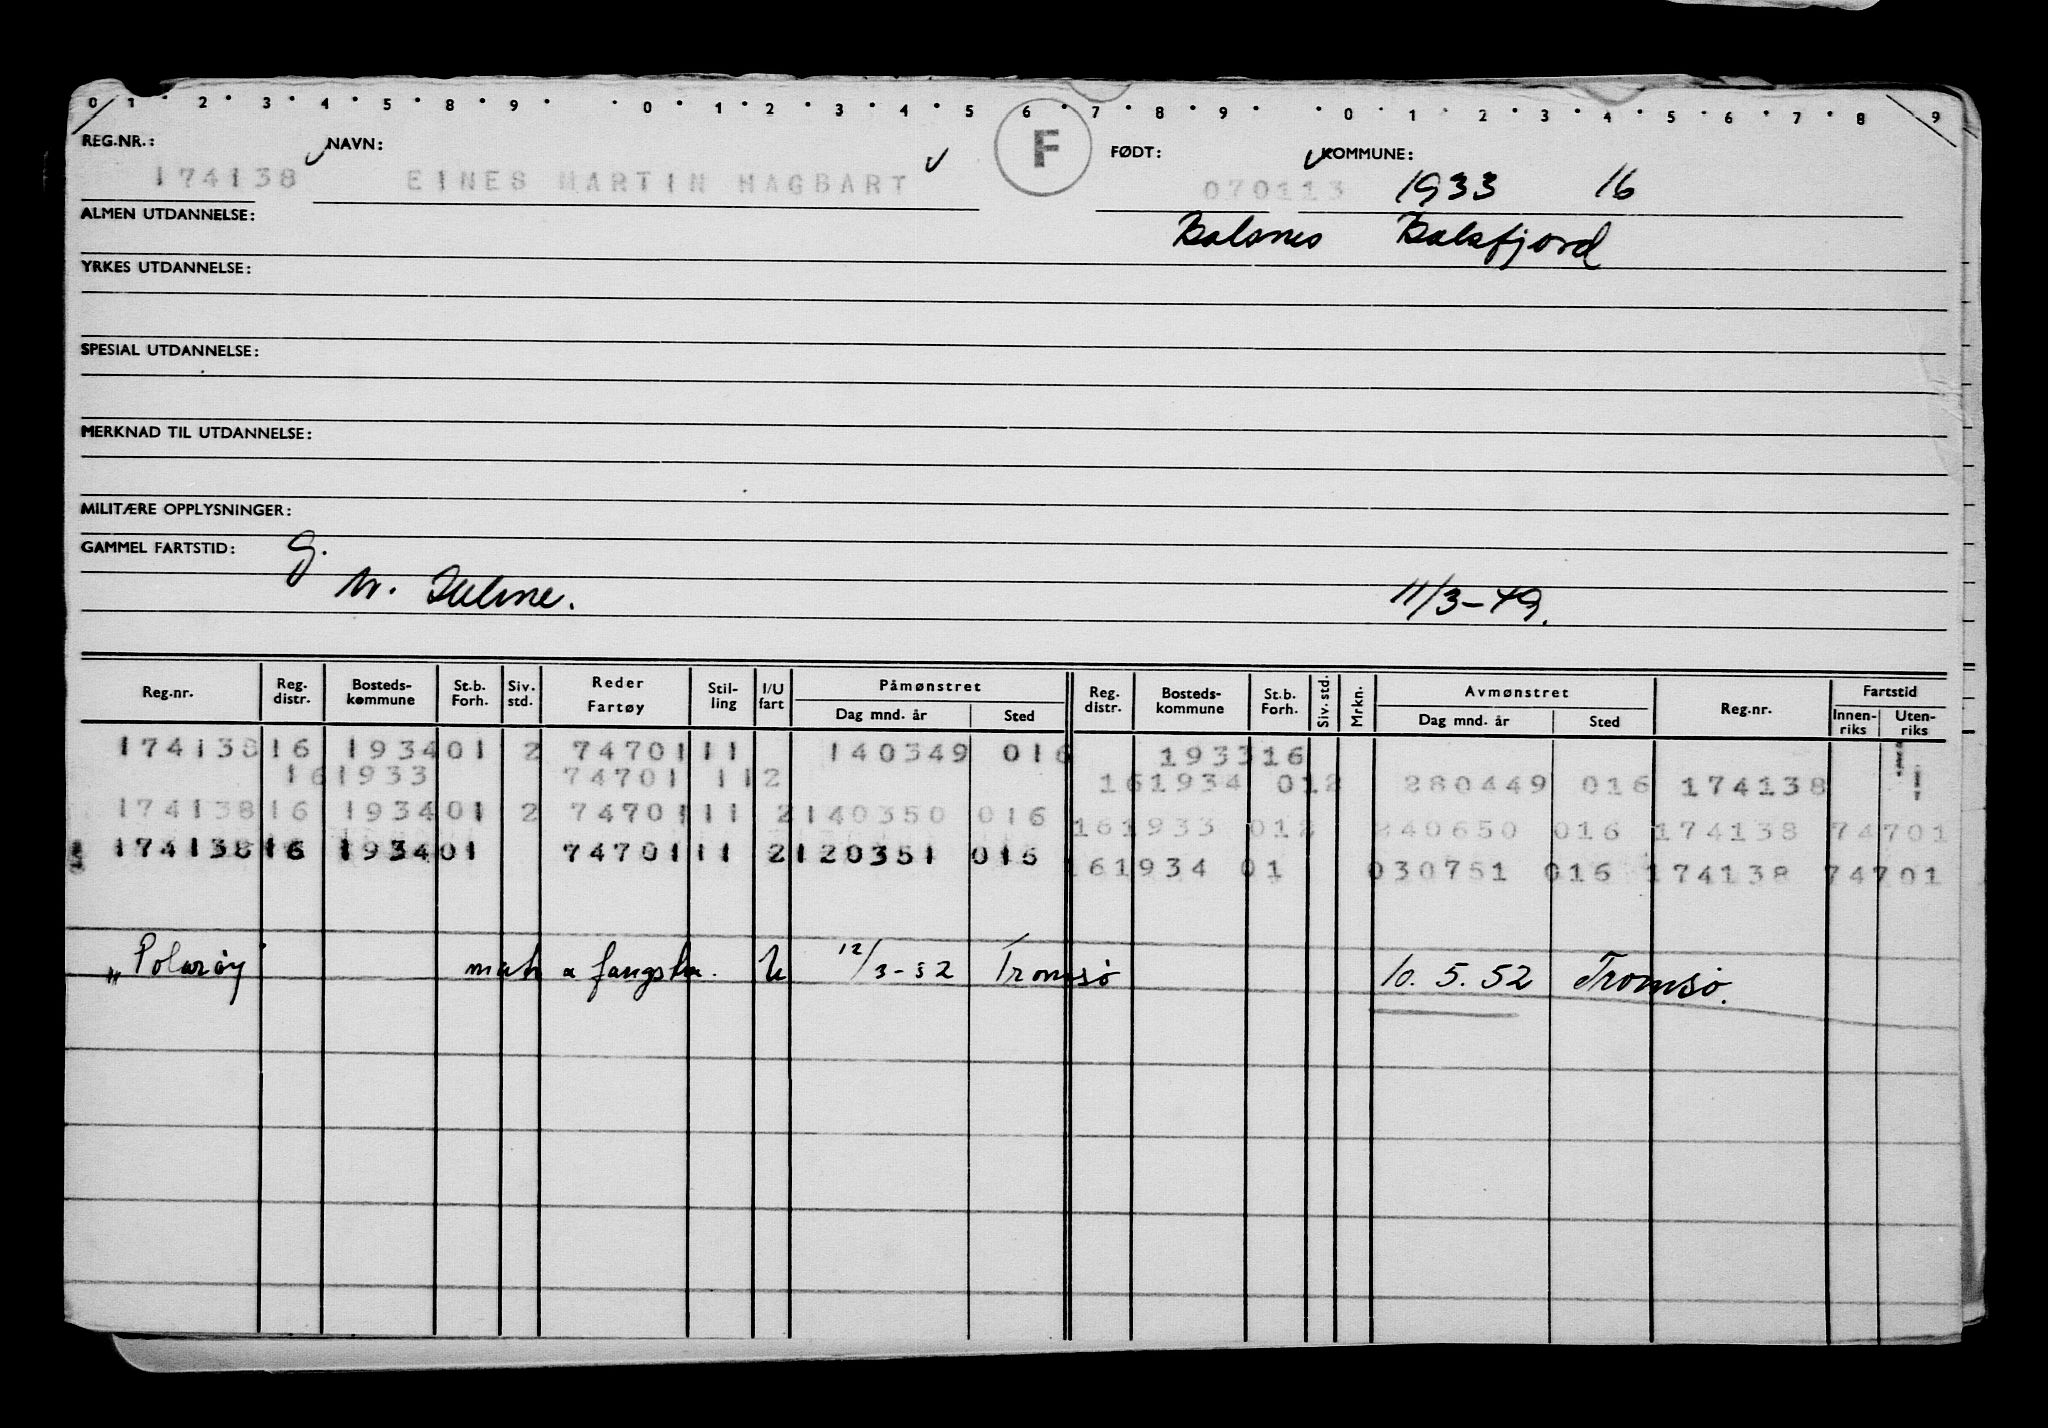 0 1 2 3 4 5 8 9 0 1 2 3 4 5 6 7 8 9 0 1 2 3 4 5 6 7 8 9
REG.NR.: NAVN: F FØDT: KOMMUNE:
174138 EINES MARTIN HAGBART 070113 1933 16
ALMEN UTDANNELSE: Balsnes Balsfjord
YRKES UTDANNELSE:
SPESIAL UTDANNELSE:
MERKNAD TIL UTDANNELSE:
MILITÆRE OPPLYSNINGER:
GAMMEL FARTSTID: G.
11/3-49.
Reg.nr. Reg. distr. Bosteds-kommune St.b. Forh. Siv. std. Reder Fartøy Stil-ling I/U fart Påmønstret Dag mnd. år Sted Reg. distr. Bosteds-kommune St.b. Forh. Siv. std. Mrkn. Avmønstret Dag mnd. år Sted Reg.nr. Fartstid Innen-riks Uten-riks
174138 16 1934 01 2 74701 11 140349 016 1933 16
161933 74701 112 161934 012 280449 016 174138
174138 16 1934 01 2 74701 11 2 140350 016 161933 012 240650 016 174138 74701
174138 16 1934 01 74701 11 2 120351 016 161934 01 030751 016 174138 74701
„Polarøy" mask a fangstm. U 12/3-52 Tromsø 10.5.52 Tromsø.